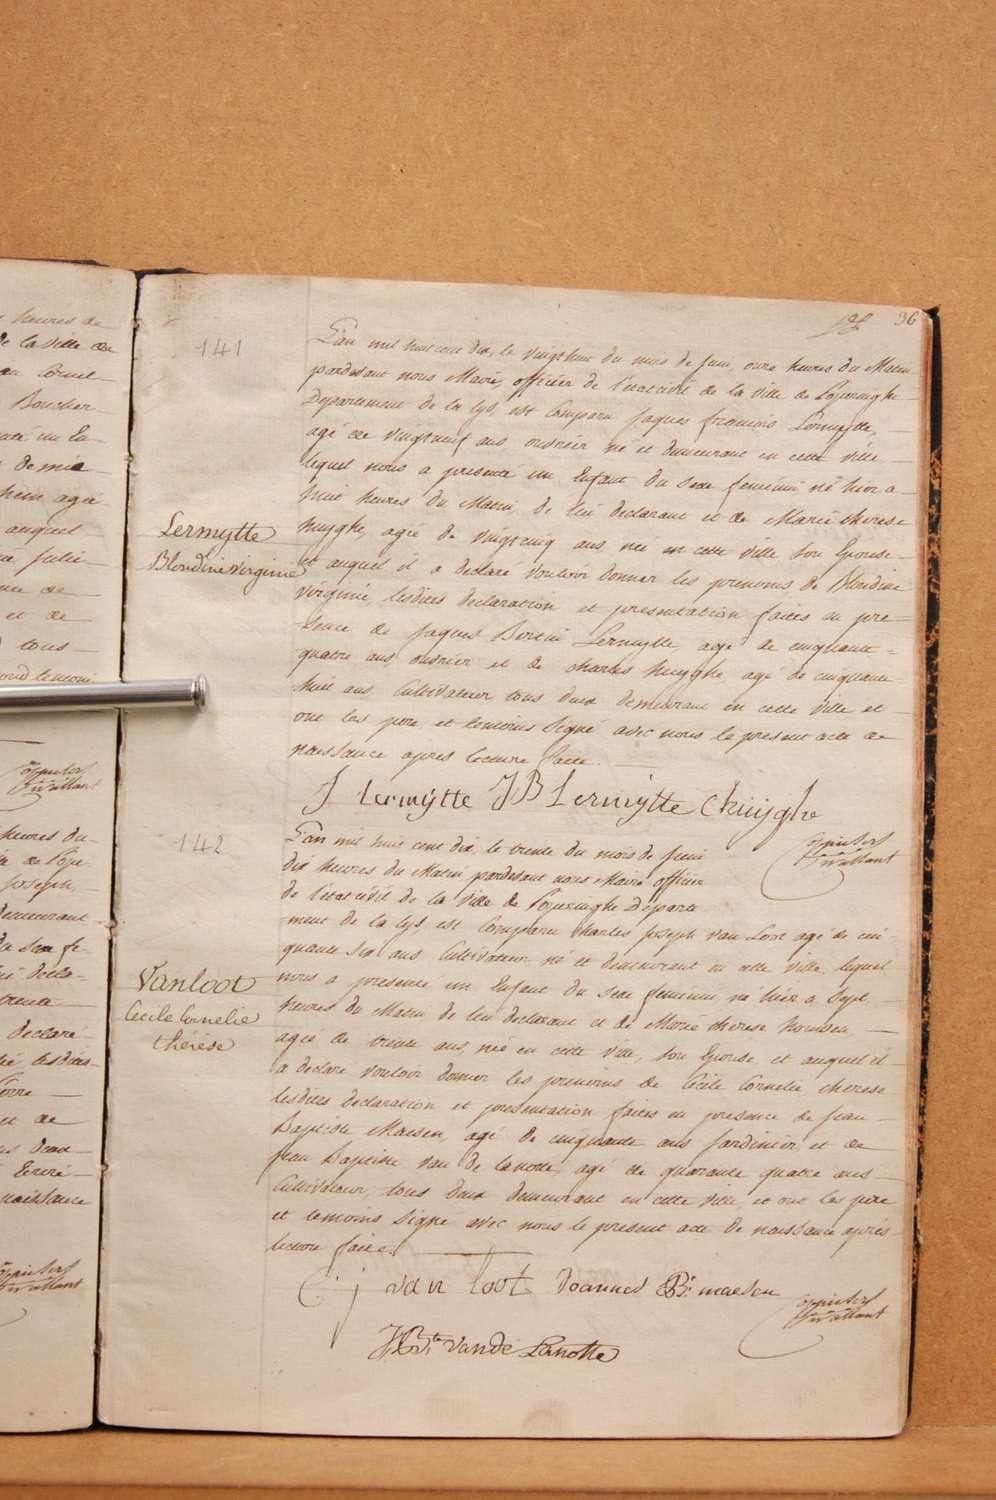 heures de
de la ville de
Boucher
demie
auquel
et de
tous
heures du
Joseph,
demeurant
trente
declaré
et de
naissance
36
141
L'an mil huit cent dix, le vingthuit du mois de Juin, onze heures du Matin
pardevant nous Maire, officier de l'état civil de la ville de Poperinghe
Departement de la Lys, est Comparu Jaques francois Lermytte,
agé de vingtneuf ans, ouvrier né et demeurant en cette ville
lequel nous a presenté un Enfant du sexe feminin né hier a
huit heures du Matin, de lui declarant et de Marie therese
huyghe, agée de vingtcinq ans, née en cette ville son Epouse
Lermytte
Blondine virginie
et auquel il a declaré vouloir donner les prenoms de Blondine
virginie, lesdites declaration et presentation faites en pre-
sence de Jaques Bertin Lermytte, agé de cinquante
quatre ans ouvrier et de charles huyghe agé de cinquante
huit ans, Cultivateur tous deux demeurant en cette ville et
ont les pere et temoins signé avec nous le present acte de
naissance apres lecture faite.
J Lermytte JB Lermytte C huyghe
142
L'an mil huit cent dix, le trente du mois de Juin
dix heures du Matin pardevant nous Maire officier
de l'état civil de la ville de Poperinghe Departe
ment de la Lys est Comparu Charles Joseph Van Loot agé de cin-
quante six ans Cultivateur né et demeurant en cette ville, lequel
Vanloot
Cecile Cornelie
thérèse
nous a presenté un Enfant du sexe feminin, né hier a Sept
heures du Matin de lui declarant et de Marie therese
agée de trente ans, née en cette ville, son Epouse, et auquel il
a declaré vouloir donner les prenoms de Cecile Cornelie therese
lesdites declaration et presentation faites en presence de Jean
Baptiste Maesen, agé de cinquante ans Jardinier, et de
Jean Baptiste Van de Lanotte, agé de quarante quatre ans
Cultivateur, tous deux demeurant en cette ville, et ont les père
et temoins signé avec nous le present acte de naissance après
lecture faite.
C: j van loot Joannes B: maesen
J.B.te vande Lanotte